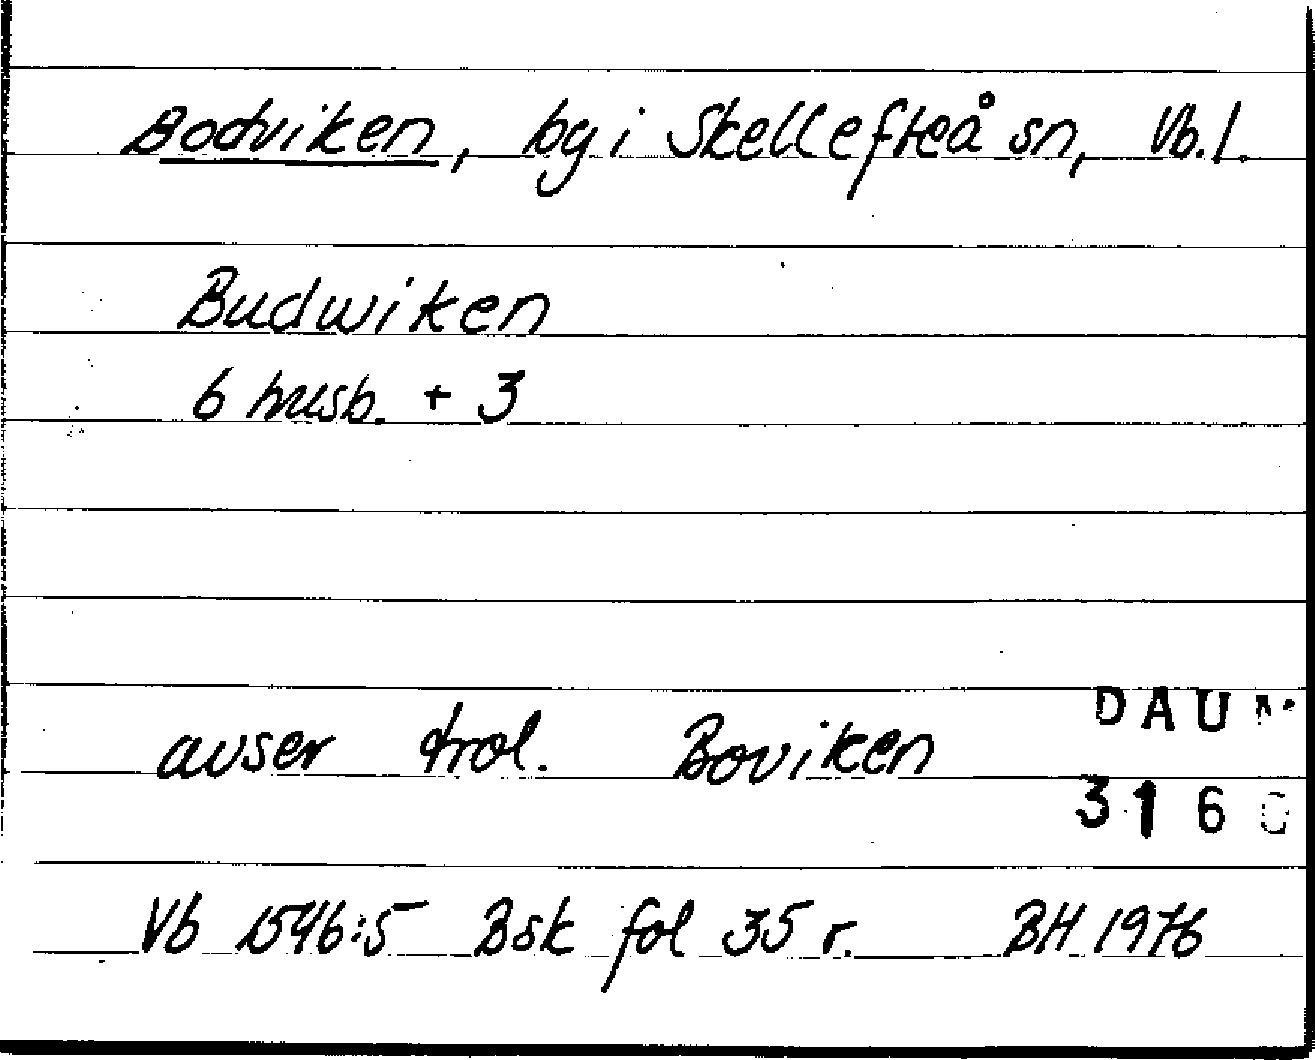 Bodviken, by i Skellefteå sn, Vb.l.
Budwiken
6 husb. + 3
avser trol. Boviken
DAUM
3160
Vb 1546:5 Bsk fol 35 r. BH 1976